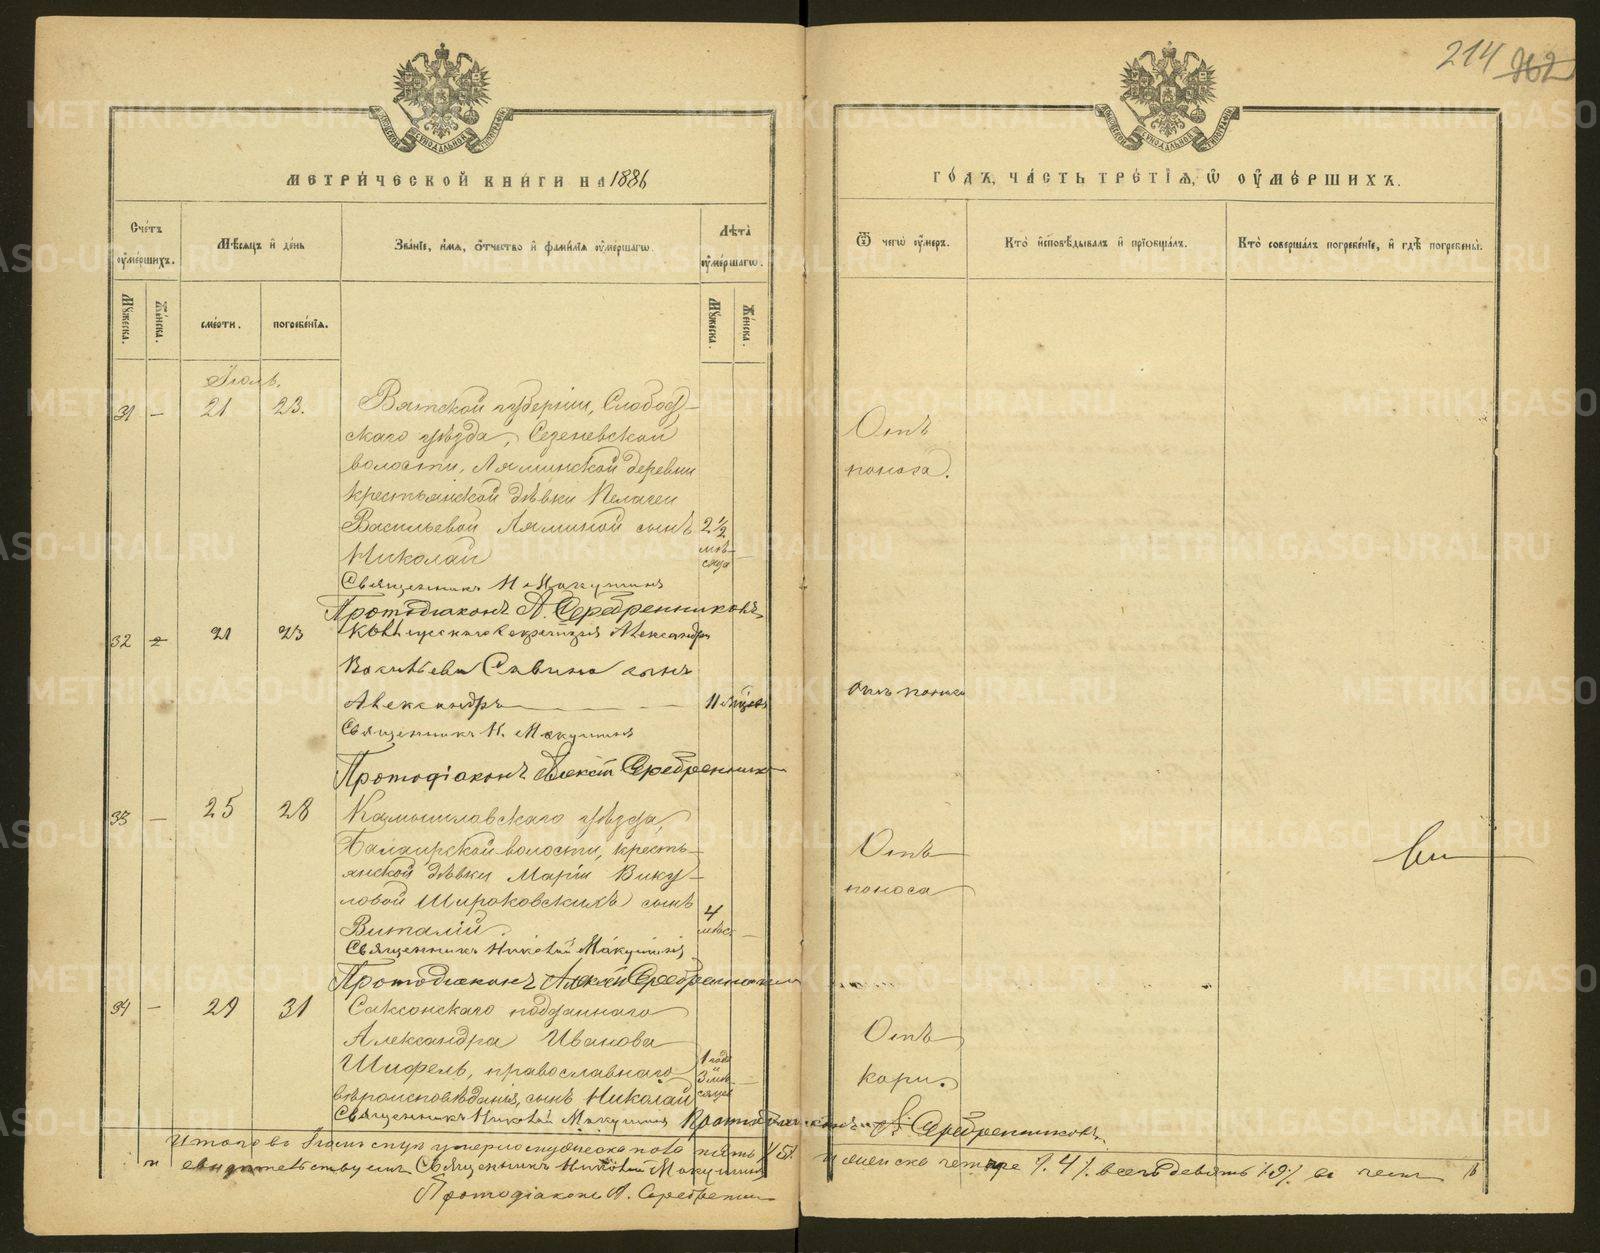 214 262
МЕТРИ́ЧЕСКОЙ КНИ́ГИ НА 1886
ГО́ДЪ, ЧА́СТЬ ТРЕ́ТІѦ, Ѡ҃ ОУ҆МЕ́РШИХЪ.
Сче́тъ оу҆ме́ршихъ.
Мѣ́сѧцъ и҆ де́нь
Зва́нїе, и҆́мѧ, ѻ҆́тчество и҆ фами́лїѧ оу҆ме́ршагѡ.
Лѣта̀ оу҆ме́ршагѡ.
Ѿ чегѡ̀ оу҆́меръ.
Кто̀ и҆сповѣ́дывалъ и҆ прїѡбща́лъ.
Кто̀ соверша́лъ погребе́нїе, и҆ гдѣ̀ погребены̀.
Мꙋ́жеска.
Же́нска.
сме́рти.
погребе́нїѧ.
Мꙋ́жеска.
Же́нска.
Іюль.
31 — 21 23. Вятской губерніи, Слобод-
скаго уѣзда, Сезеневской
волости, Ляминской деревни
крестьянской дѣвки Пелагеи
Васильевой Ляминой сынъ
Николай
2 1/2 мѣ-сяца
Отъ
поноса.
Священникъ Н Макушинъ
Протодіаконъ А. Серебренниковъ
32 21 23 Александра
Савина сынъ
Александръ 11 мѣсяцевъ
отъ поноса
Священникъ Н. Макушинъ
Протодіаконъ Алексѣй Серебренников
33 — 25 28 Камышловскаго уѣзда,
Балаирской волости, кресть-
янской дѣвки Маріи Вику-
ловой Широковскихъ сынъ
Виталій
4 мѣс.
Отъ
поноса
Священникъ Николай Макушинъ
Протодіаконъ Алексѣй Серебренников
34 — 29 31 Саксонскаго подданнаго
Александра Иванова
Шифель, православнаго
вѣроисповѣданія, сынъ Николай
1 годъ и 3 мѣсяца
Отъ
кори.
Священникъ Николай Макушинъ Протодіаконъ А. Серебренниковъ
Итого въ Іюлѣ умерло мужеска пола пять /5/. и женска четыре /4/. всего девять /9/. въ чемъ
и свидѣтельствуемъ Священникъ Николай Макушинъ
Протодіаконъ А. Серебренни
METRIKI.GASO-URAL.RU